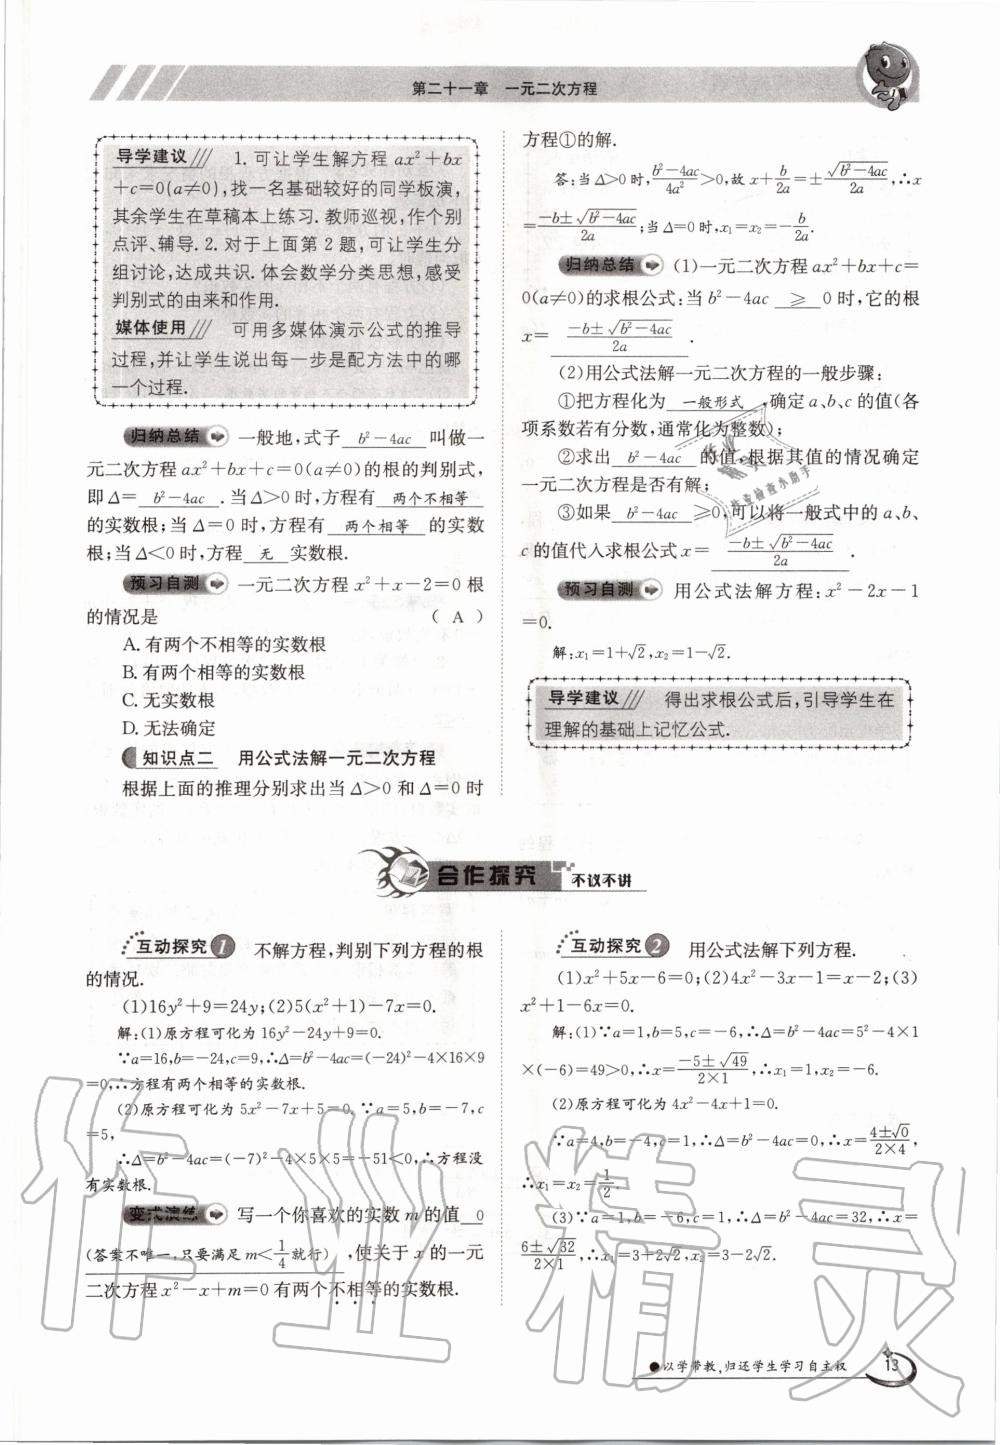 第二十一章 一元二次方程
导学建议 1. 可让学生解方程 ax²+bx
+c=0(a≠0),找一名基础较好的同学板演,
其余学生在草稿本上练习. 教师巡视,作个别
点评、辅导. 2. 对于上面第 2 题,可让学生分
组讨论,达成共识. 体会数学分类思想,感受
判别式的由来和作用.
媒体使用 可用多媒体演示公式的推导
过程,并让学生说出每一步是配方法中的哪
一个过程.
归纳总结 一般地,式子 b²-4ac 叫做一
元二次方程 ax²+bx+c=0(a≠0)的根的判别式,
即 Δ= b²-4ac .当 Δ>0 时,方程有 两个不相等
的实数根;当 Δ=0 时,方程有 两个相等 的实数
根;当 Δ<0 时,方程 无 实数根.
预习自测 一元二次方程 x²+x-2=0 根
的情况是 ( A )
A. 有两个不相等的实数根
B. 有两个相等的实数根
C. 无实数根
D. 无法确定
知识点二 用公式法解一元二次方程
根据上面的推理分别求出当 Δ>0 和 Δ=0 时
方程①的解.
答:当 Δ>0 时, (b²-4ac)/(4a²)>0,故 x+b/(2a)=±√(b²-4ac)/(2a),∴x
=(-b±√(b²-4ac))/(2a);当 Δ=0 时,x₁=x₂=-b/(2a).
归纳总结 (1)一元二次方程 ax²+bx+c=
0(a≠0)的求根公式:当 b²-4ac ≥ 0 时,它的根
x= (-b±√(b²-4ac))/(2a) .
(2)用公式法解一元二次方程的一般步骤:
①把方程化为 一般形式 ,确定 a、b、c 的值(各
项系数若有分数,通常化为整数);
②求出 b²-4ac 的值,根据其值的情况确定
一元二次方程是否有解;
③如果 b²-4ac ≥0,可以将一般式中的 a、b、
c 的值代入求根公式 x= (-b±√(b²-4ac))/(2a) .
预习自测 用公式法解方程:x²-2x-1
=0.
解:x₁=1+√2,x₂=1-√2.
导学建议 得出求根公式后,引导学生在
理解的基础上记忆公式.
合作探究 不议不讲
互动探究 1 不解方程,判别下列方程的根
的情况.
(1)16y²+9=24y;(2)5(x²+1)-7x=0.
解:(1)原方程可化为 16y²-24y+9=0.
∵a=16,b=-24,c=9,∴Δ=b²-4ac=(-24)²-4×16×9
=0,∴方程有两个相等的实数根.
(2)原方程可化为 5x²-7x+5=0,∵a=5,b=-7,c
=5,
∴Δ=b²-4ac=(-7)²-4×5×5=-51<0,∴方程没
有实数根.
变式演练 写一个你喜欢的实数 m 的值 0
(答案不唯一,只要满足 m<1/4 就行) ,使关于 x 的一元
二次方程 x²-x+m=0 有两个不相等的实数根.
互动探究 2 用公式法解下列方程.
(1)x²+5x-6=0;(2)4x²-3x-1=x-2;(3)
x²+1-6x=0.
解:(1)∵a=1,b=5,c=-6,∴Δ=b²-4ac=5²-4×1
×(-6)=49>0,∴x=(-5±√49)/(2×1),∴x₁=1,x₂=-6.
(2)原方程可化为 4x²-4x+1=0.
∵a=4,b=-4,c=1,∴Δ=b²-4ac=0,∴x=(4±√0)/(2×4),
∴x₁=x₂=1/2.
(3)∵a=1,b=-6,c=1,∴Δ=b²-4ac=32,∴x=
(6±√32)/(2×1),∴x₁=3+2√2,x₂=3-2√2.
●以学带教,归还学生学习自主权 13
作业精灵